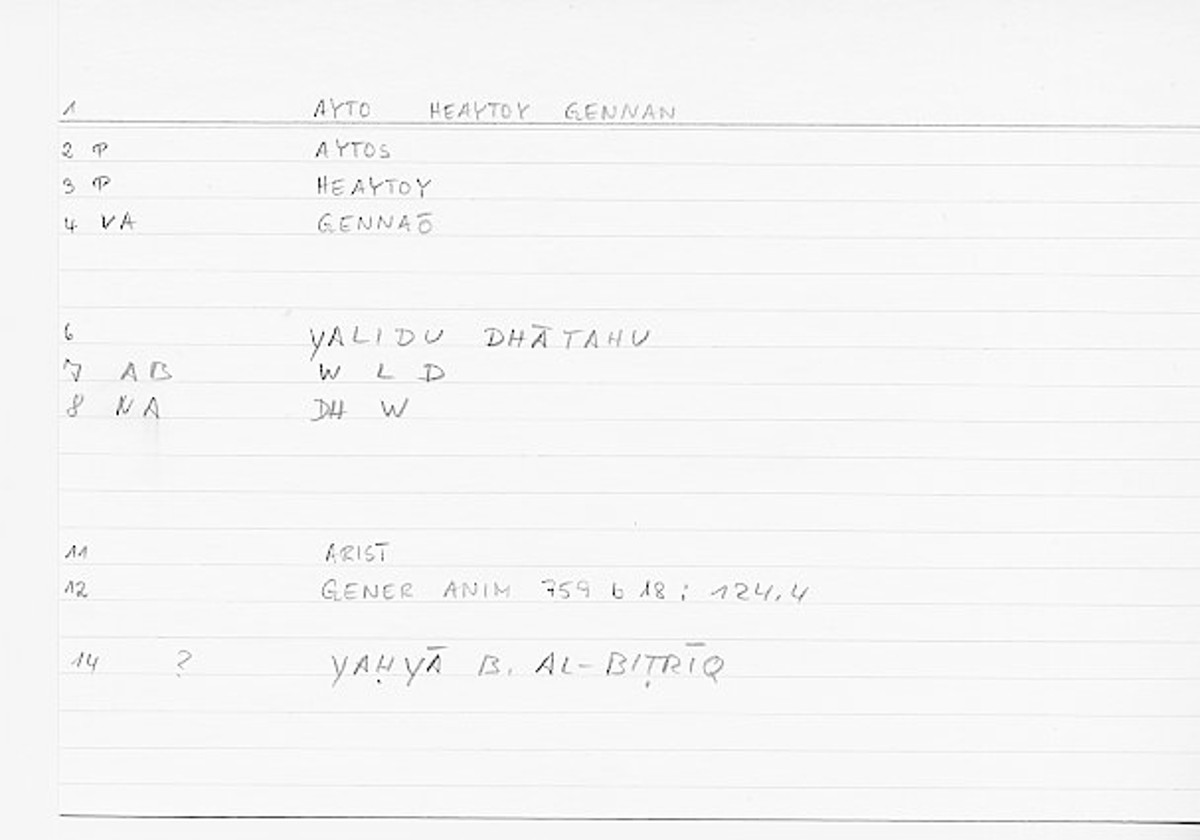 1 AYTO HEAYTOY GENNAN
2 P AYTOS
3 P HEAYTOY
4 VA GENNAŌ
6 YALIDU DHĀTAHU
7 AB W L D
8 NA DH W
11 ARIST
12 GENER ANIM 759 b 18 ; 124.4
14 ? YAḤYĀ B. AL-BIṬRĪQ